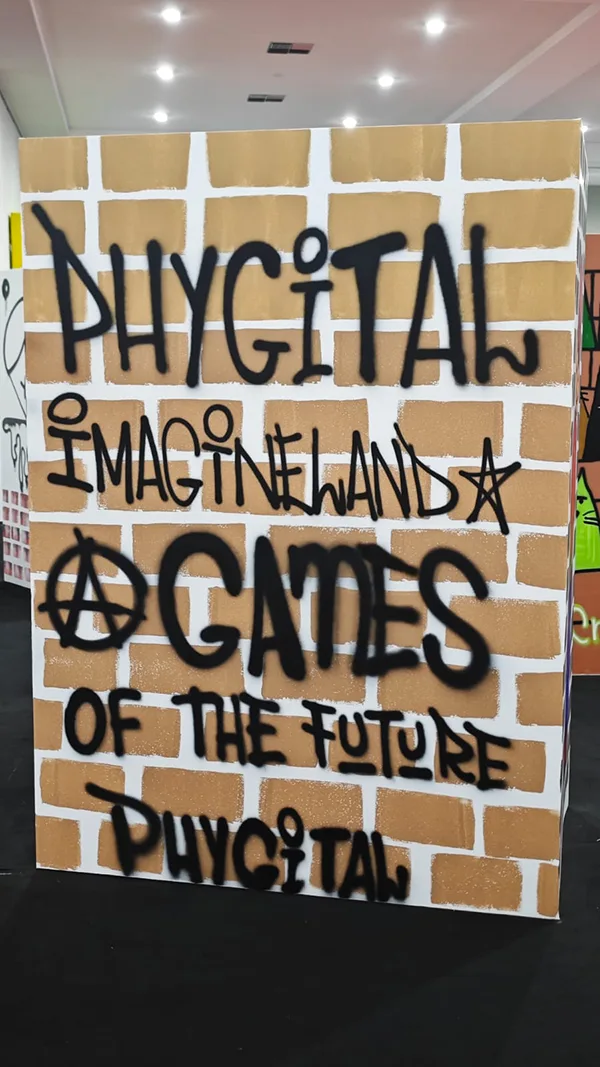 PHYGiTAL
iMAGiNELAND☆
Ⓐ GAMES
OF THE FUTURE
PHYGiTAL